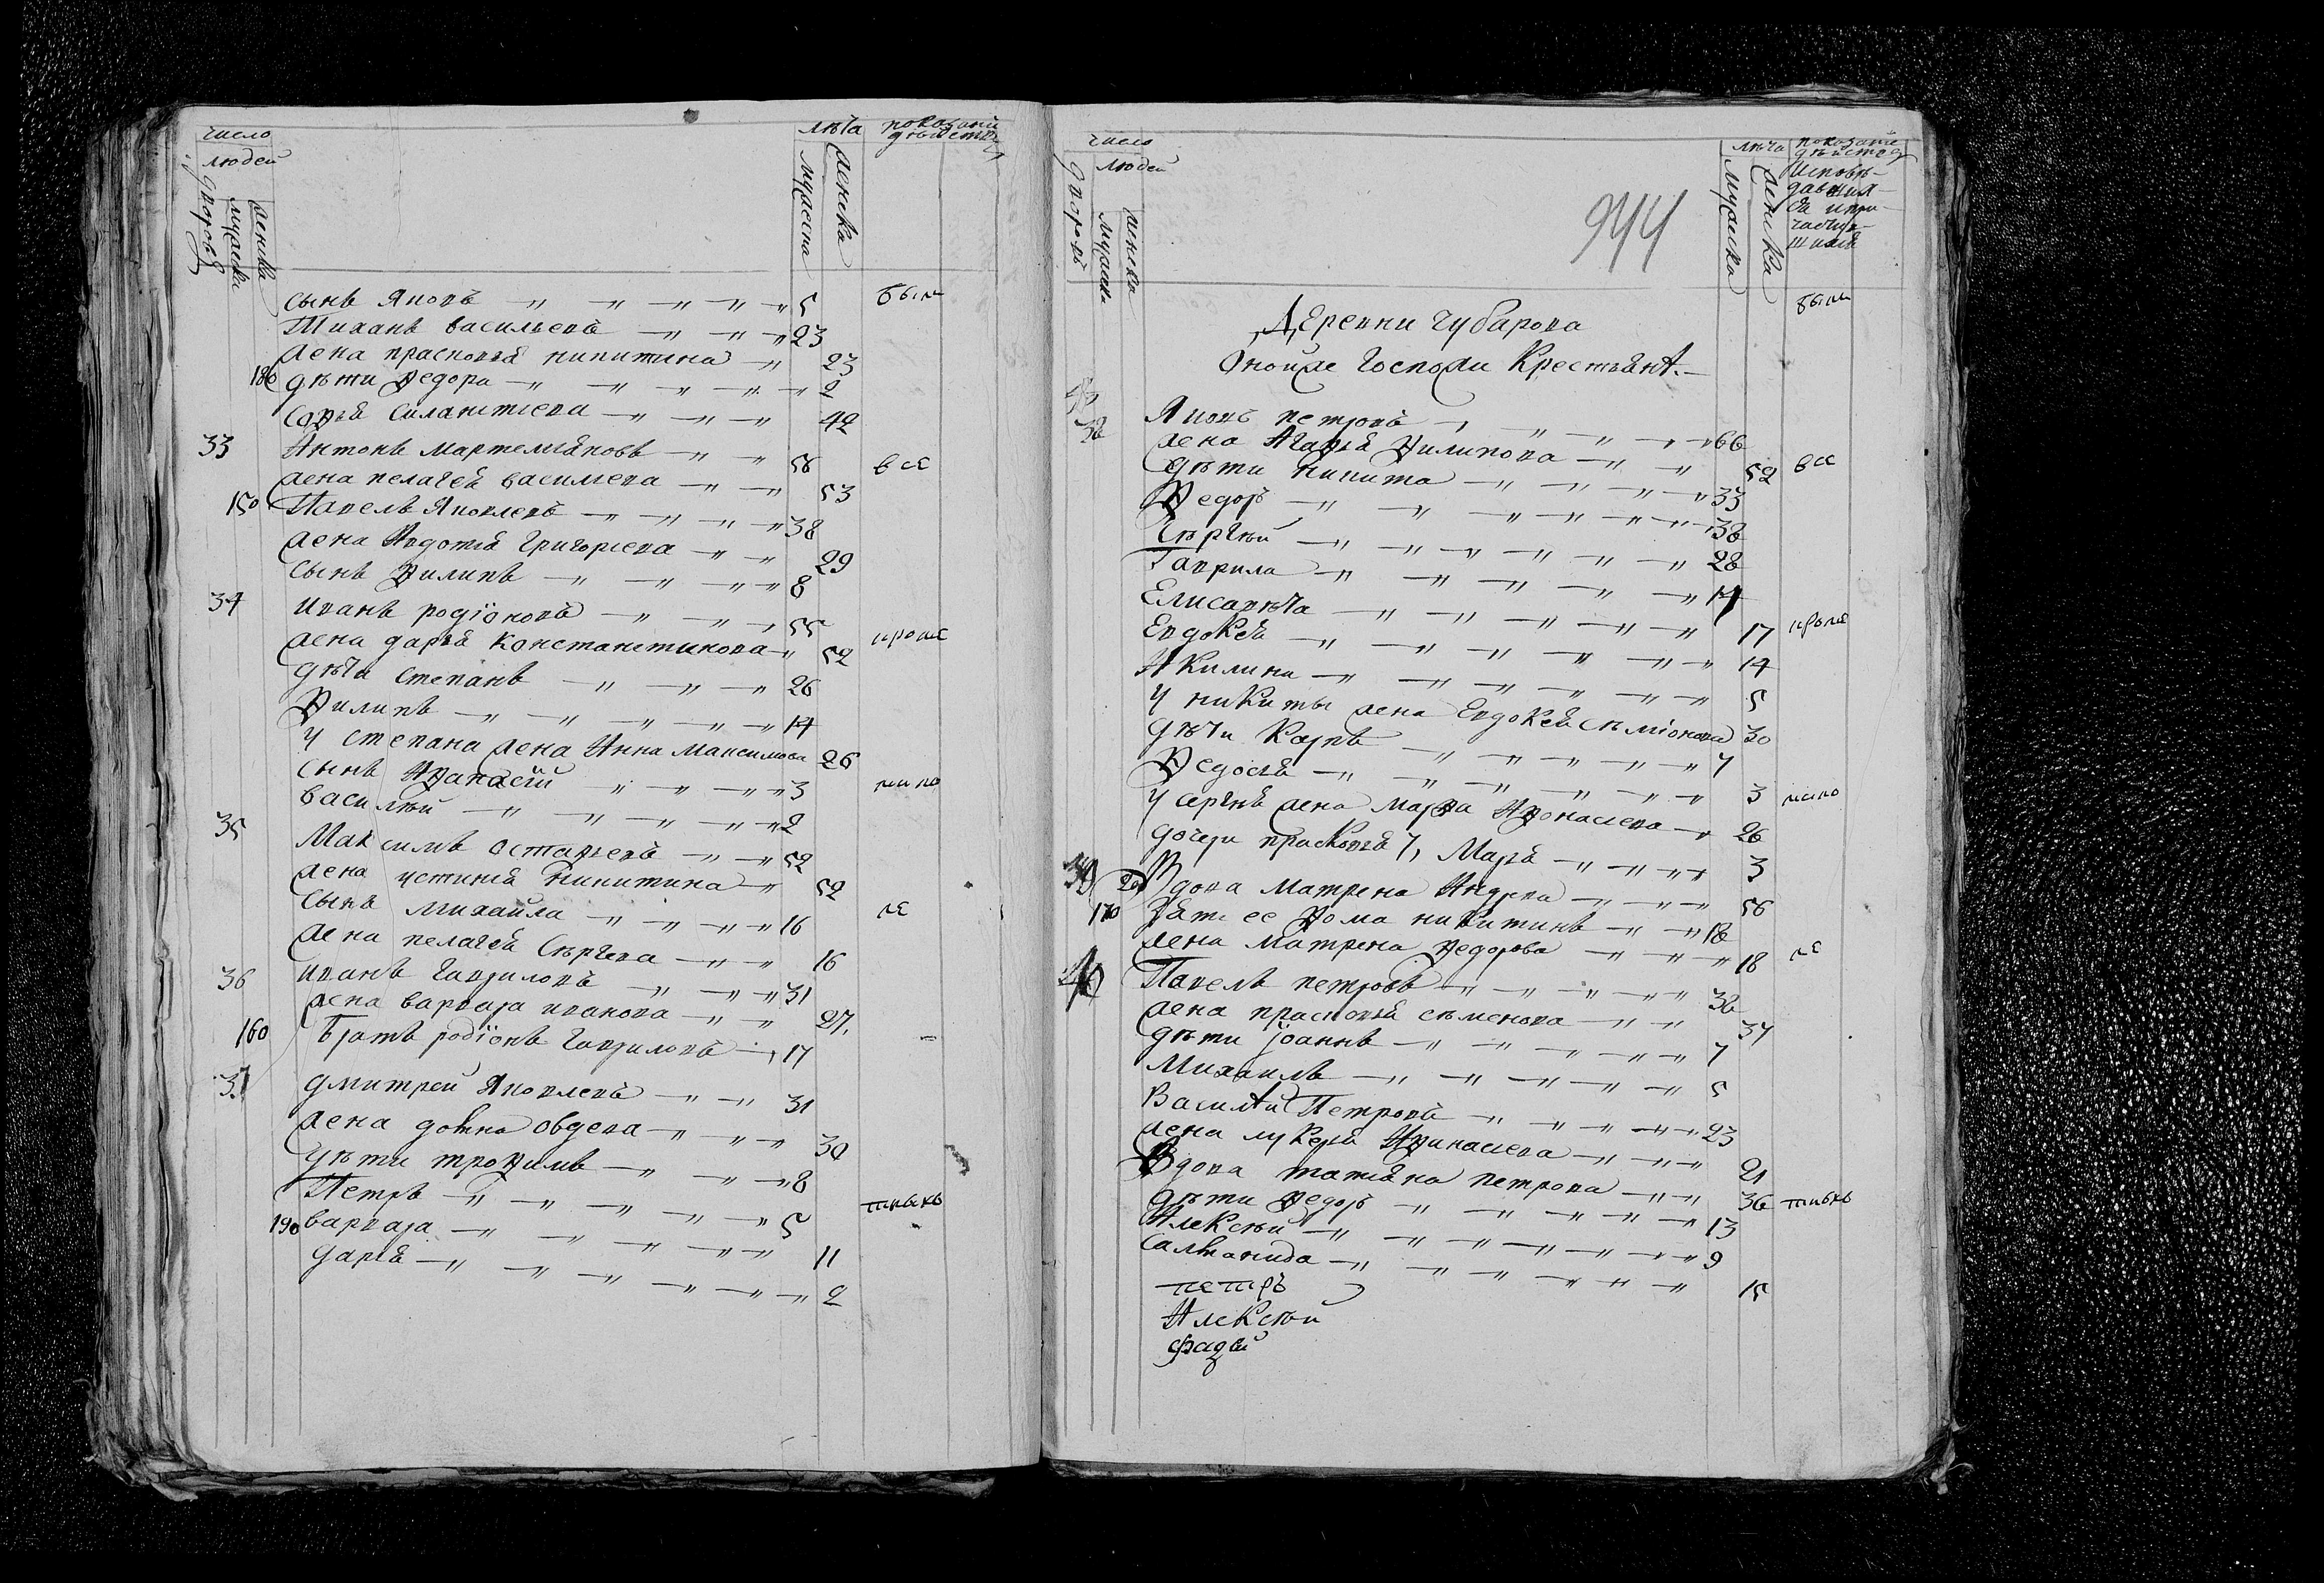 число
людей
дворовъ
мужеска
женска
лѣта
мужеска
женска
сынъ Яковъ 5 были
Михаилъ васильевъ 23
жена прасковья никитина 23
180 дѣти Ѳедора 2
Софья Силантиева 42
33 Антонъ мартемьяновъ 58 всѣ
жена пелагея васильева 53
150 Павелъ Яковлевъ 38
жена Авдотья Григорьева 29
сынъ Ѳилипъ 8
34 иванъ родїоновъ 55
жена дарья константинова 52 кромѣ
дѣти степанъ 26
Ѳилипъ 14
У степана жена Анна Максимова 26
сынъ Аѳанасїй 3
василий 2
35 Максимъ Остафьевъ 52
жена устинья никитина 52
сынъ михайла 16
жена пелагея Сергѣева 16
36 иванъ гаврилов 31
жена варвара иванова 27
160 Братъ родїонъ гавриловъ 17
37 дмитрей Яковлевъ 31
жена домна Овдеева 30
дѣти троѳимъ 8
Петръ 5
190 варвара 11
дарья 2
число
людей
дворовъ
мужеска
женска
лѣта
мужеска
женска
944
Деревни чубарова
Оной же Господи Крестьянѣ
были
38 Яковъ петровъ 66
жена Агафья Ѳилипова 52 всѣ
дѣти никита 33
Ѳедоръ 38
Сергѣй 28
Гаврила 14
Елисавѣта 17 кромѣ
Евдокея 14
Акилина 5
У никиты жена Евдокея Сѣмїонова 30
дѣти Карпъ 7
Ѳедосья 3
У сергѣя жена марѳа Аѳонасиева 26
дочери прасковья 7, Марья 3
39 Вдова матрена Андреева 56
170 Зять ее Ѳома никитинъ 18
жена матрена Ѳедорова 18
40 Павелъ петровъ 38
жена прасковья сѣменова 34
дѣти їоаннъ 7
Михаилъ 5
Василий Петровъ 23
жена лукерья Аѳинасиева 21
Вдова татьяна петрова 36
дѣти Ѳедоръ 13
Алексѣй 9
Саломанида 15
петръ
Алексѣй
Фадѣй